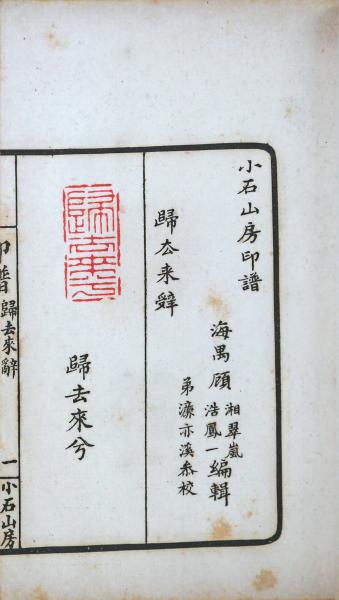 小石山房印譜
海禺顧湘翠嵐
浩鳳一編輯
弟濠亦溪叅校
歸去来辭
歸去來兮
歸去來兮
印譜 歸去來辭 二 小石山房